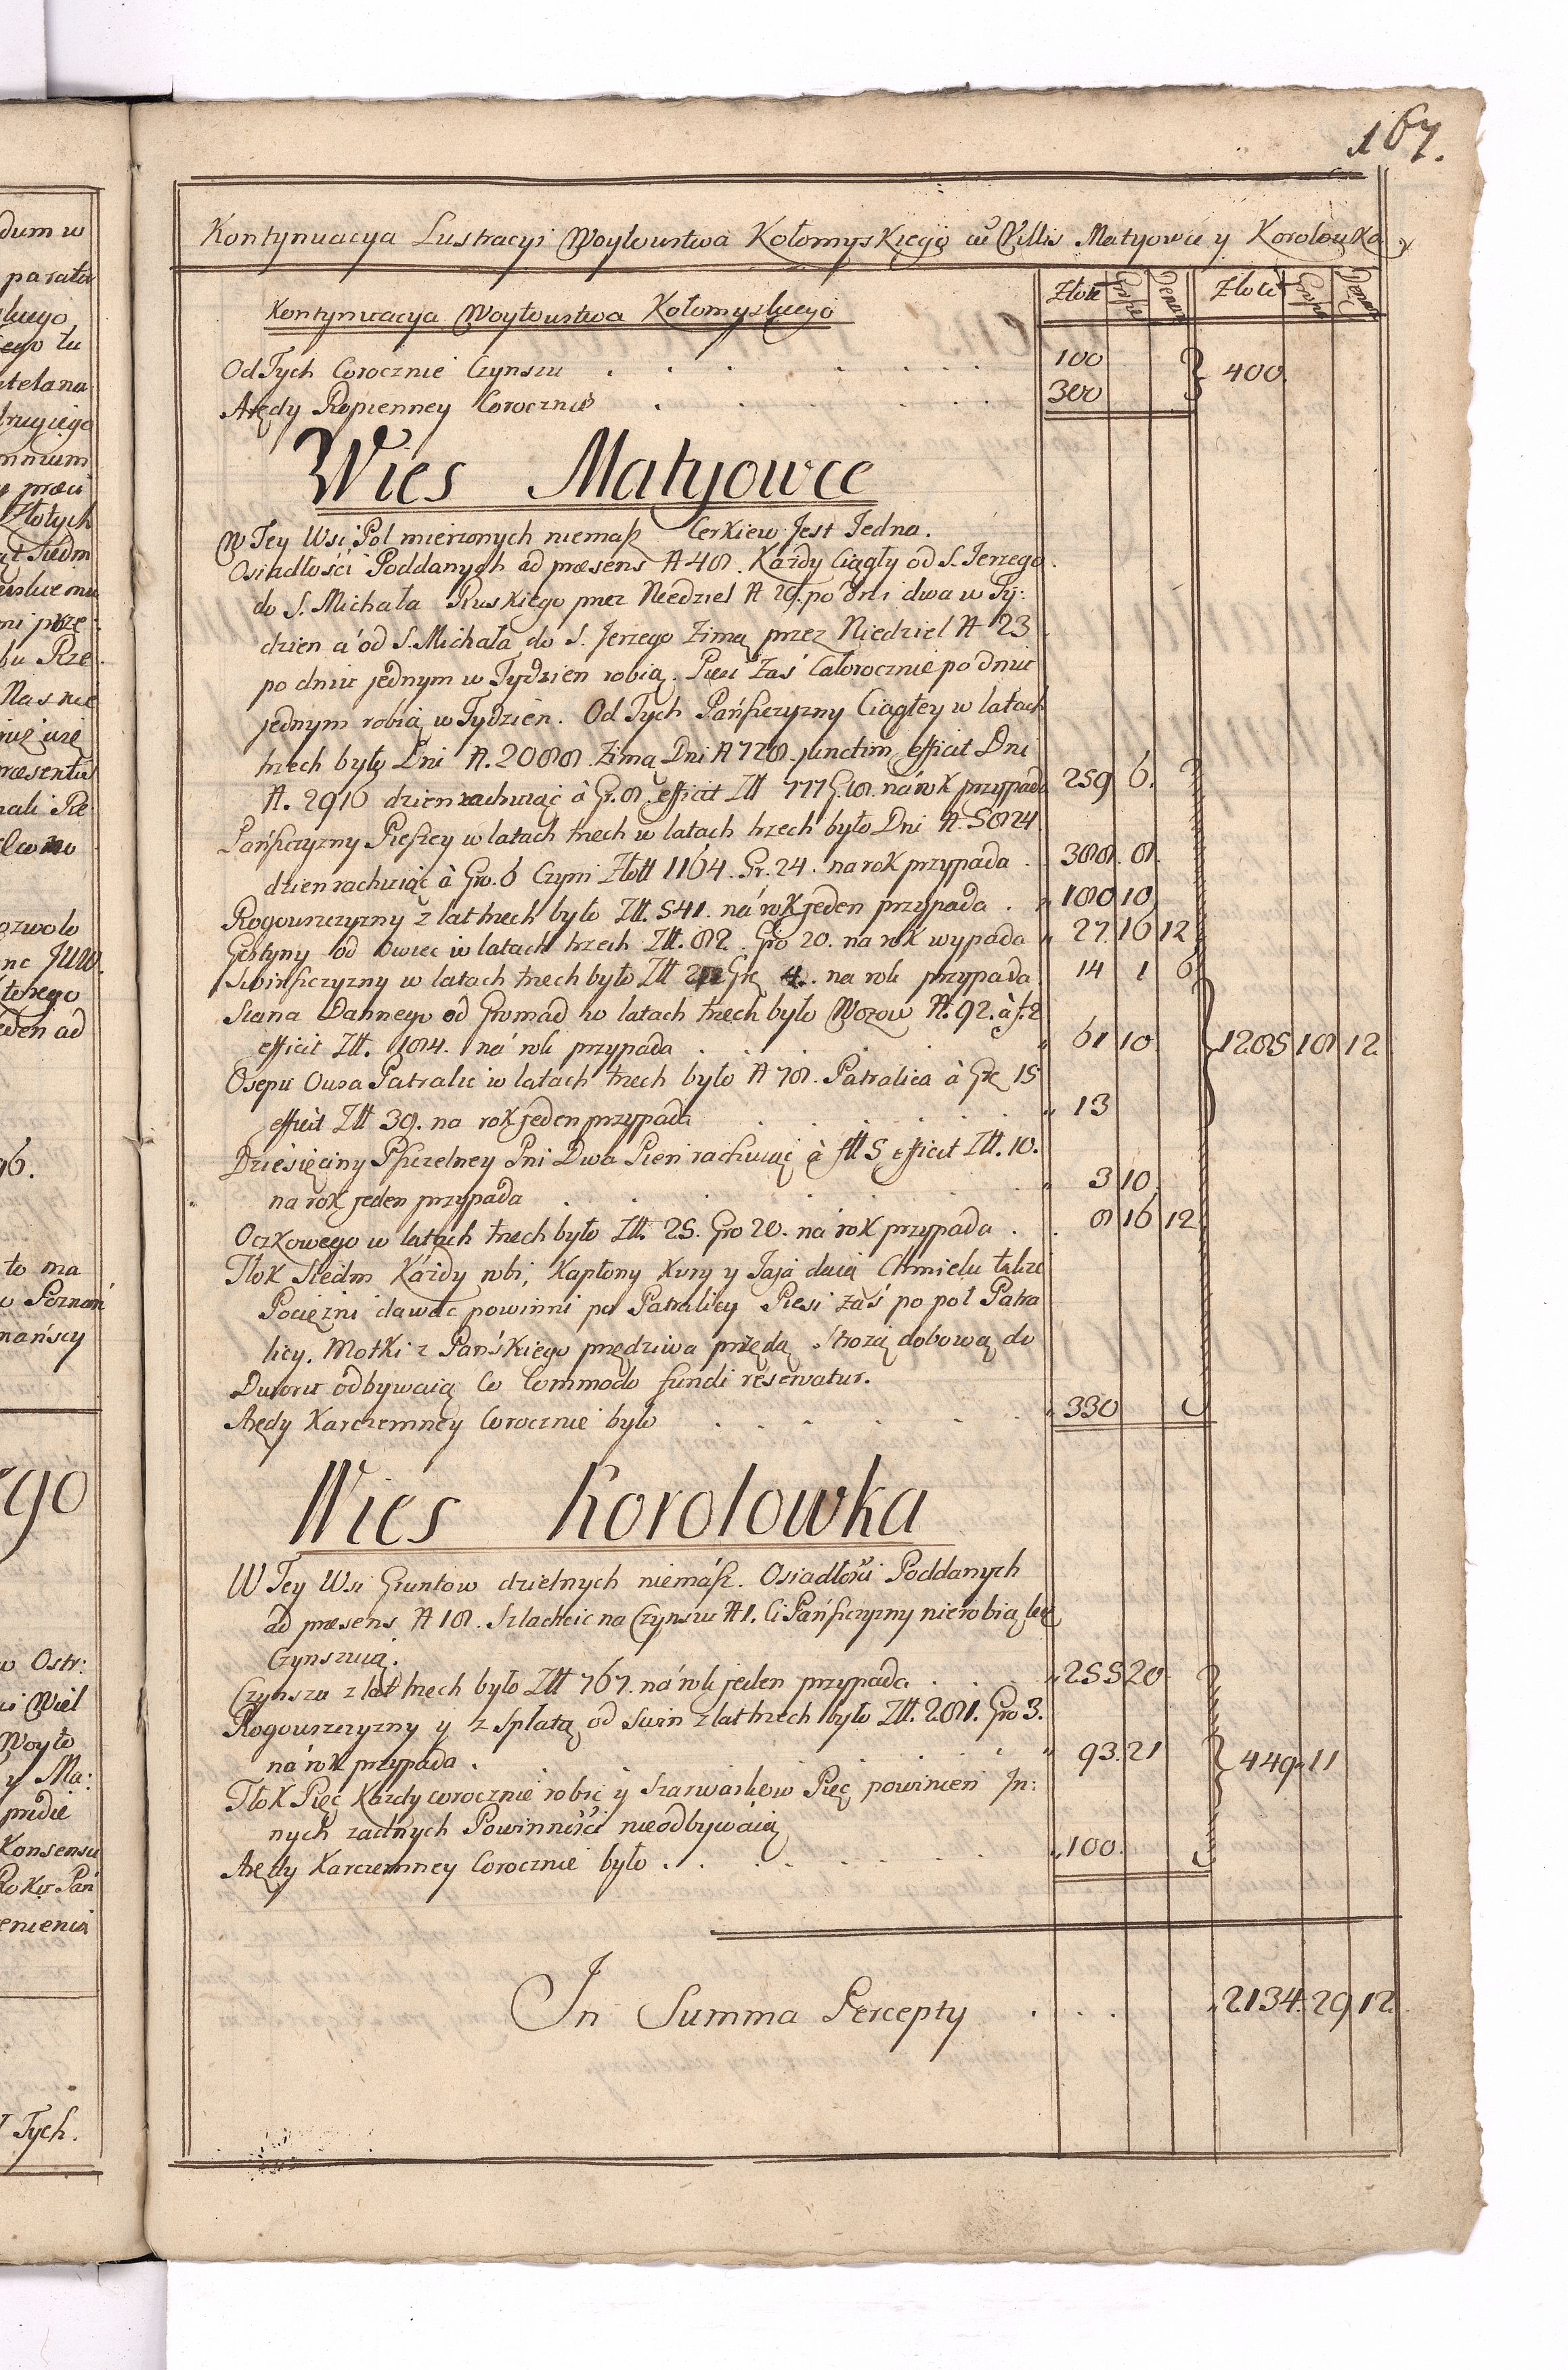 167.
Kontynuacya Lustracyi Woytowstwa Kołomyskiego cũ Villis Matyowce y Korolowka
Złote Grosze Denar Złote Grosze Denar
Kontynuacya Woytowstwa Kołomyskiego
Od Tych Corocznie Czynszu 100 400.
Arędy Ropienney Corocznie 300
Wies Matyowce
W Tey Wsi Pol mierzonych niemasz Cerkiew Jest Jedna.
Osiadłości Poddanych ad præsens N 48. Każdy Ciągły od S. Jerzego
do S. Michała Ruskiego przez Niedziel N 29. po dni dwa w Ty:
dzien a od S. Michała do S. Jerzego Zimą przez Niedziel N 23
po dniu jednym w Tydzien robią. Piesi Zaś Całorocznie po dniu
jednym robią w Tydzien. Od Tych Pańszczyzny Ciągłey w latach
trzech było Dni N. 2088. Zimą Dni N 828. junctim efficit Dni
N. 2916 dzien rachuiąc à Gr. 8. efficit Złt 777 G. 18. na rok przypada 259 6.
Pańszczyzny Pieszey w latach trzech w latach trzech było Dni N. 5824
dzien rachuiąc à Gro. 6 Czyni Złott 1164. Gr. 24. na rok przypada 388. 8.
Rogowszczyzny z lat trzech było Złt. 541. na rok jeden przypada 180 10
Gostyny od Owiec w latach trzech Złt. 82. Gro 20. na rok wypada 27. 16 12
Swinszczyzny w latach trzech było Złt Grz 4. na rok przypada 14 1 6
Siana Dannego od Gromad w latach trzech było Wozow N. 92. à f. 2
efficit Złt. 184. na rok przypada 61 10 1285 18 12
Osepu Owsa Patralic w latach trzech było N 78. Patralica à Grz 15
efficit Złt 39. na rok jeden przypada 13
Dziesięciny Pszczelney Pni Dwa Pien rachuiąc à fłł 5 efficit Złt. 10.
na rok jeden przypada 3 10
Oczkowego w latach trzech było Złt. 25. Gro 20. na rok przypada 8 16 12
Tłok Siedm Każdy robi, Kapłony Kury y Jaja daią Chmielu także
Pociężni dawac powinni po Patralicy Piesi zaś po poł Patra
licy. Motki z Pańskiego przędziwa przędą Strożą dobową do
Dworu odbywaią Co Commodo fundi reservatur.
Arędy Karczemney Corocznie było 330
Wies Korolowka
W Tey Wsi Gruntow dzielnych niemasz. Osiadłości Poddanych
ad præsens N 18. Szlachcic na Czynszu N 1. Ci Pańszczyzny nierobią lecz
Czynszuią.
Czynszu z lat trzech było Złt 767. na rok jeden przypada 255 20
Rogowszczyzny y z spłatą od Swin z lat trzech było Złt. 281. Gro 3.
na rok przypada 93. 21 449. 11
Tłok Pięc Każdy corocznie robic y Szarwarkow Pięc powinien In:
nych zadnych Powinności nieodbywaią
Arędy Karczemney Corocznie było 100.
In Summa Percepty 2134. 29 12